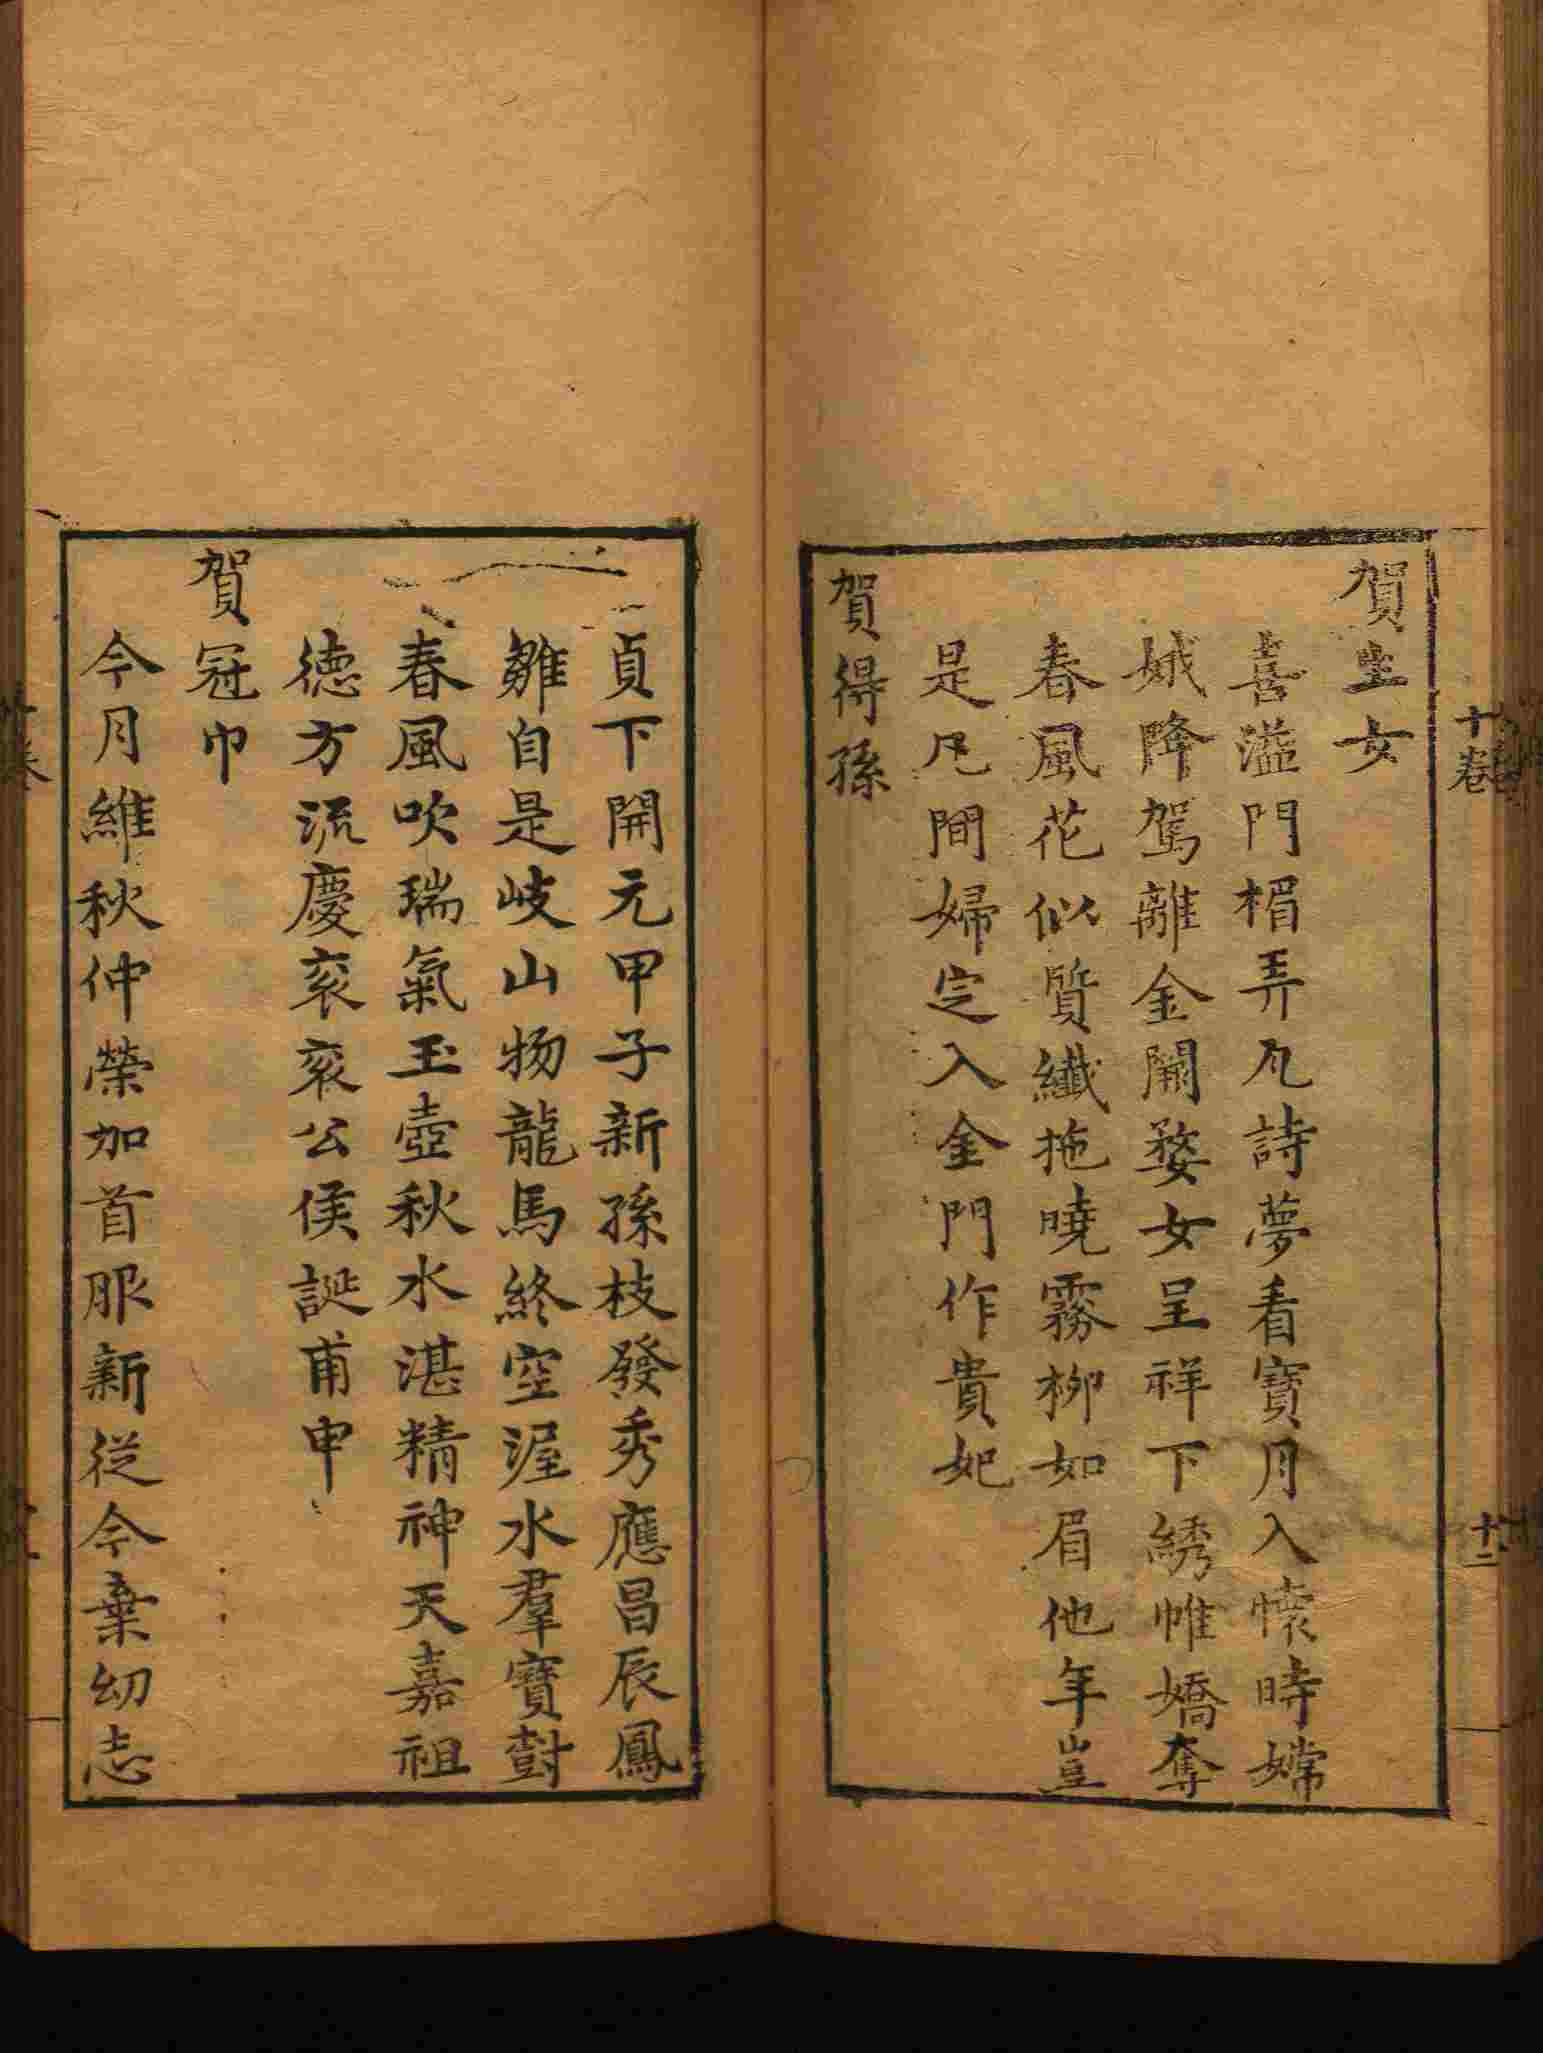 賀生女
喜溢門楣弄瓦詩夢看寶月入懷時嫦
娥降駕離金闕婺女呈祥下綉帷嬌奪
春風花似質纖拖曉霧柳如眉他年豈
是凡間婦定入金門作貴妃
賀得孫
十卷
十二
貞下開元甲子新孫枝發秀應昌辰鳳
雛自是岐山物龍馬終空渥水羣寶對
春風吹瑞氣玉壺秋水湛精神天嘉祖
德方流慶衮衮公侯誕甫申
賀冠巾
今月維秋仲榮加首服新從今棄幼志